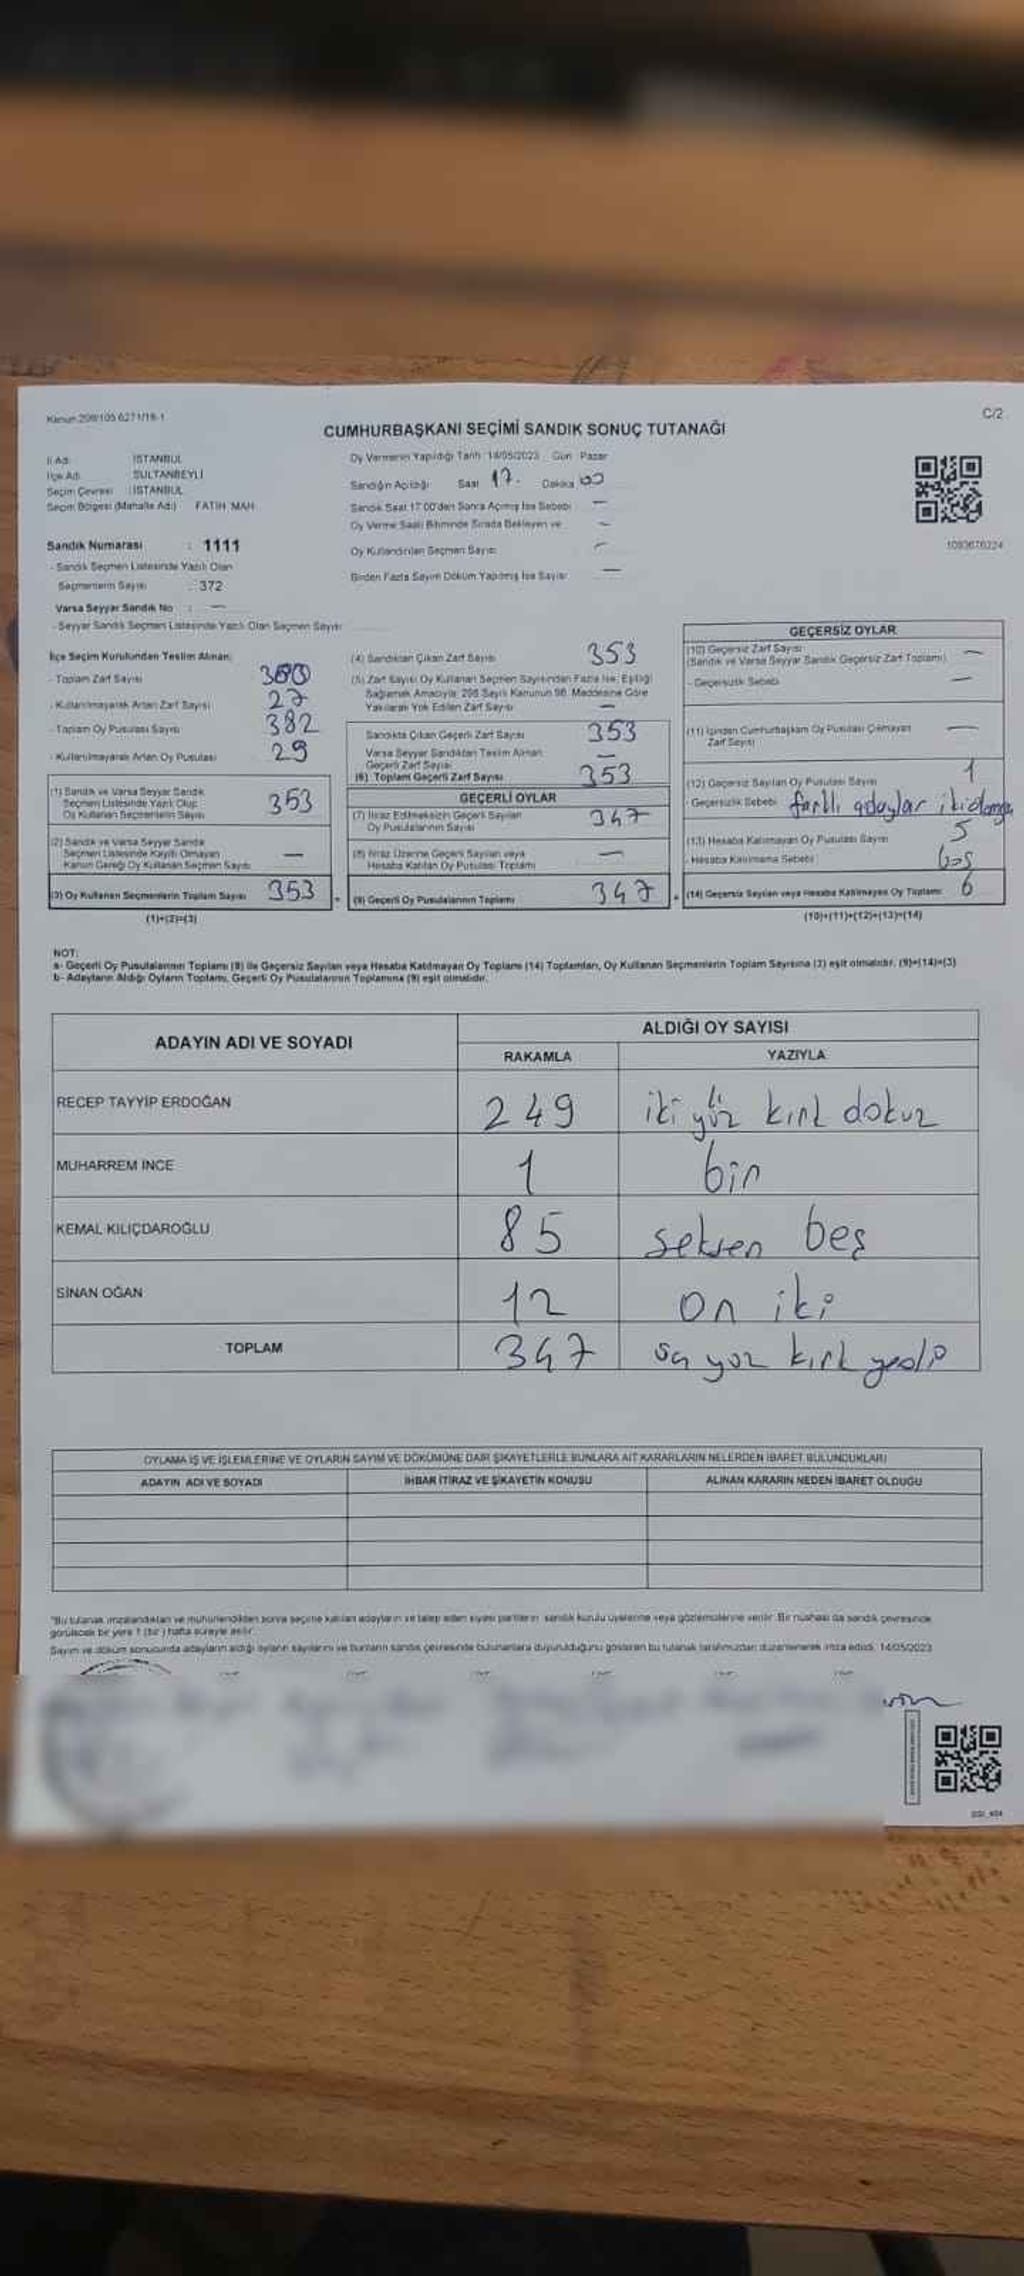 Kanun 298/105 6271/19-1
C/2
CUMHURBAŞKANI SEÇİMİ SANDIK SONUÇ TUTANAĞI
İl Adı : İSTANBUL
İlçe Adı : SULTANBEYLİ
Seçim Çevresi : İSTANBUL
Seçim Bölgesi (Mahalle Adı) : FATİH MAH.
Sandık Numarası : 1111
- Sandık Seçmen Listesinde Yazılı Olan
Seçmenlerin Sayısı : 372
Varsa Seyyar Sandık No : —
- Seyyar Sandık Seçmen Listesinde Yazılı Olan Seçmen Sayısı
Oy Vermenin Yapıldığı Tarih : 14/05/2023 Gün : Pazar
Sandığın Açıldığı Saat 17. Dakika 00
Sandık Saat 17:00'den Sonra Açılmış İse Sebebi —
Oy Verme Saati Bitiminde Sırada Bekleyen ve —
Oy Kullandırılan Seçmen Sayısı —
Birden Fazla Sayım Döküm Yapılmış İse Sayısı —
1093676224
İlçe Seçim Kurulundan Teslim Alınan;
- Toplam Zarf Sayısı
- Kullanılmayarak Artan Zarf Sayısı 27
- Toplam Oy Pusulası Sayısı 382
- Kullanılmayarak Artan Oy Pusulası 29
(1) Sandık ve Varsa Seyyar Sandık
Seçmen Listesinde Yazılı Olup
Oy Kullanan Seçmenlerin Sayısı 353
(2) Sandık ve Varsa Seyyar Sandık
Seçmen Listesinde Kayıtlı Olmayan
Kanun Gereği Oy Kullanan Seçmen Sayısı —
(3) Oy Kullanan Seçmenlerin Toplam Sayısı 353
(1)+(2)=(3)
(4) Sandıktan Çıkan Zarf Sayısı 353
(5) Zarf Sayısı Oy Kullanan Seçmen Sayısından Fazla İse, Eşitliği
Sağlamak Amacıyla, 298 Sayılı Kanunun 98. Maddesine Göre
Yakılarak Yok Edilen Zarf Sayısı —
Sandıkta Çıkan Geçerli Zarf Sayısı 353
Varsa Seyyar Sandıktan Teslim Alınan
Geçerli Zarf Sayısı —
(6) Toplam Geçerli Zarf Sayısı 353
GEÇERLİ OYLAR
(7) İtiraz Edilmeksizin Geçerli Sayılan
Oy Pusulalarının Sayısı 347
(8) İtiraz Üzerine Geçerli Sayılan veya
Hesaba Katılan Oy Pusulası Toplamı —
(9) Geçerli Oy Pusulalarının Toplamı 347
GEÇERSİZ OYLAR
(10) Geçersiz Zarf Sayısı —
(Sandık ve Varsa Seyyar Sandık Geçersiz Zarf Toplamı)
- Geçersizlik Sebebi —
(11) İçinden Cumhurbaşkanı Oy Pusulası Çıkmayan
Zarf Sayısı —
(12) Geçersiz Sayılan Oy Pusulası Sayısı 1
- Geçersizlik Sebebi farklı adaylar iki
(13) Hesaba Katılmayan Oy Pusulası Sayısı 5
- Hesaba Katılmama Sebebi boş
(14) Geçersiz Sayılan veya Hesaba Katılmayan Oy Toplamı 6
(10)+(11)+(12)+(13)=(14)
NOT:
a- Geçerli Oy Pusulalarının Toplamı (9) ile Geçersiz Sayılan veya Hesaba Katılmayan Oy Toplamı (14) Toplamları, Oy Kullanan Seçmenlerin Toplam Sayısına (3) eşit olmalıdır. (9)+(14)=(3)
b- Adayların Aldığı Oyların Toplamı, Geçerli Oy Pusulalarının Toplamına (9) eşit olmalıdır.
ADAYIN ADI VE SOYADI
ALDIĞI OY SAYISI
RAKAMLA YAZIYLA
RECEP TAYYİP ERDOĞAN 249 iki yüz kırk dokuz
MUHARREM İNCE 1 bir
KEMAL KILIÇDAROĞLU 85 seksen beş
SİNAN OĞAN 12 on iki
TOPLAM 347 yüz kırk yedi
OYLAMA İŞ VE İŞLEMLERİNE VE OYLARIN SAYIM VE DÖKÜMÜNE DAİR ŞİKAYETLERLE BUNLARA AİT KARARLARIN NELERDEN İBARET BULUNDUKLARI
ADAYIN ADI VE SOYADI İHBAR İTİRAZ VE ŞİKAYETİN KONUSU ALINAN KARARIN NEDEN İBARET OLDUĞU
"Bu tutanak imzalandıktan ve mühürlendikten sonra seçime katılan adayların ve talep eden siyasi partilerin sandık kurulu üyelerine veya gözlemcilerine verilir. Bir nüshası da sandık çevresinde
görülecek bir yere 1 (bir) hafta süreyle asılır.
Sayım ve döküm sonucunda adayların aldığı oyların sayılarını ve bunların sandık çevresinde bulunanlara duyurulduğunu gösteren bu tutanak tarafımızdan düzenlenerek imza edildi. 14/05/2023